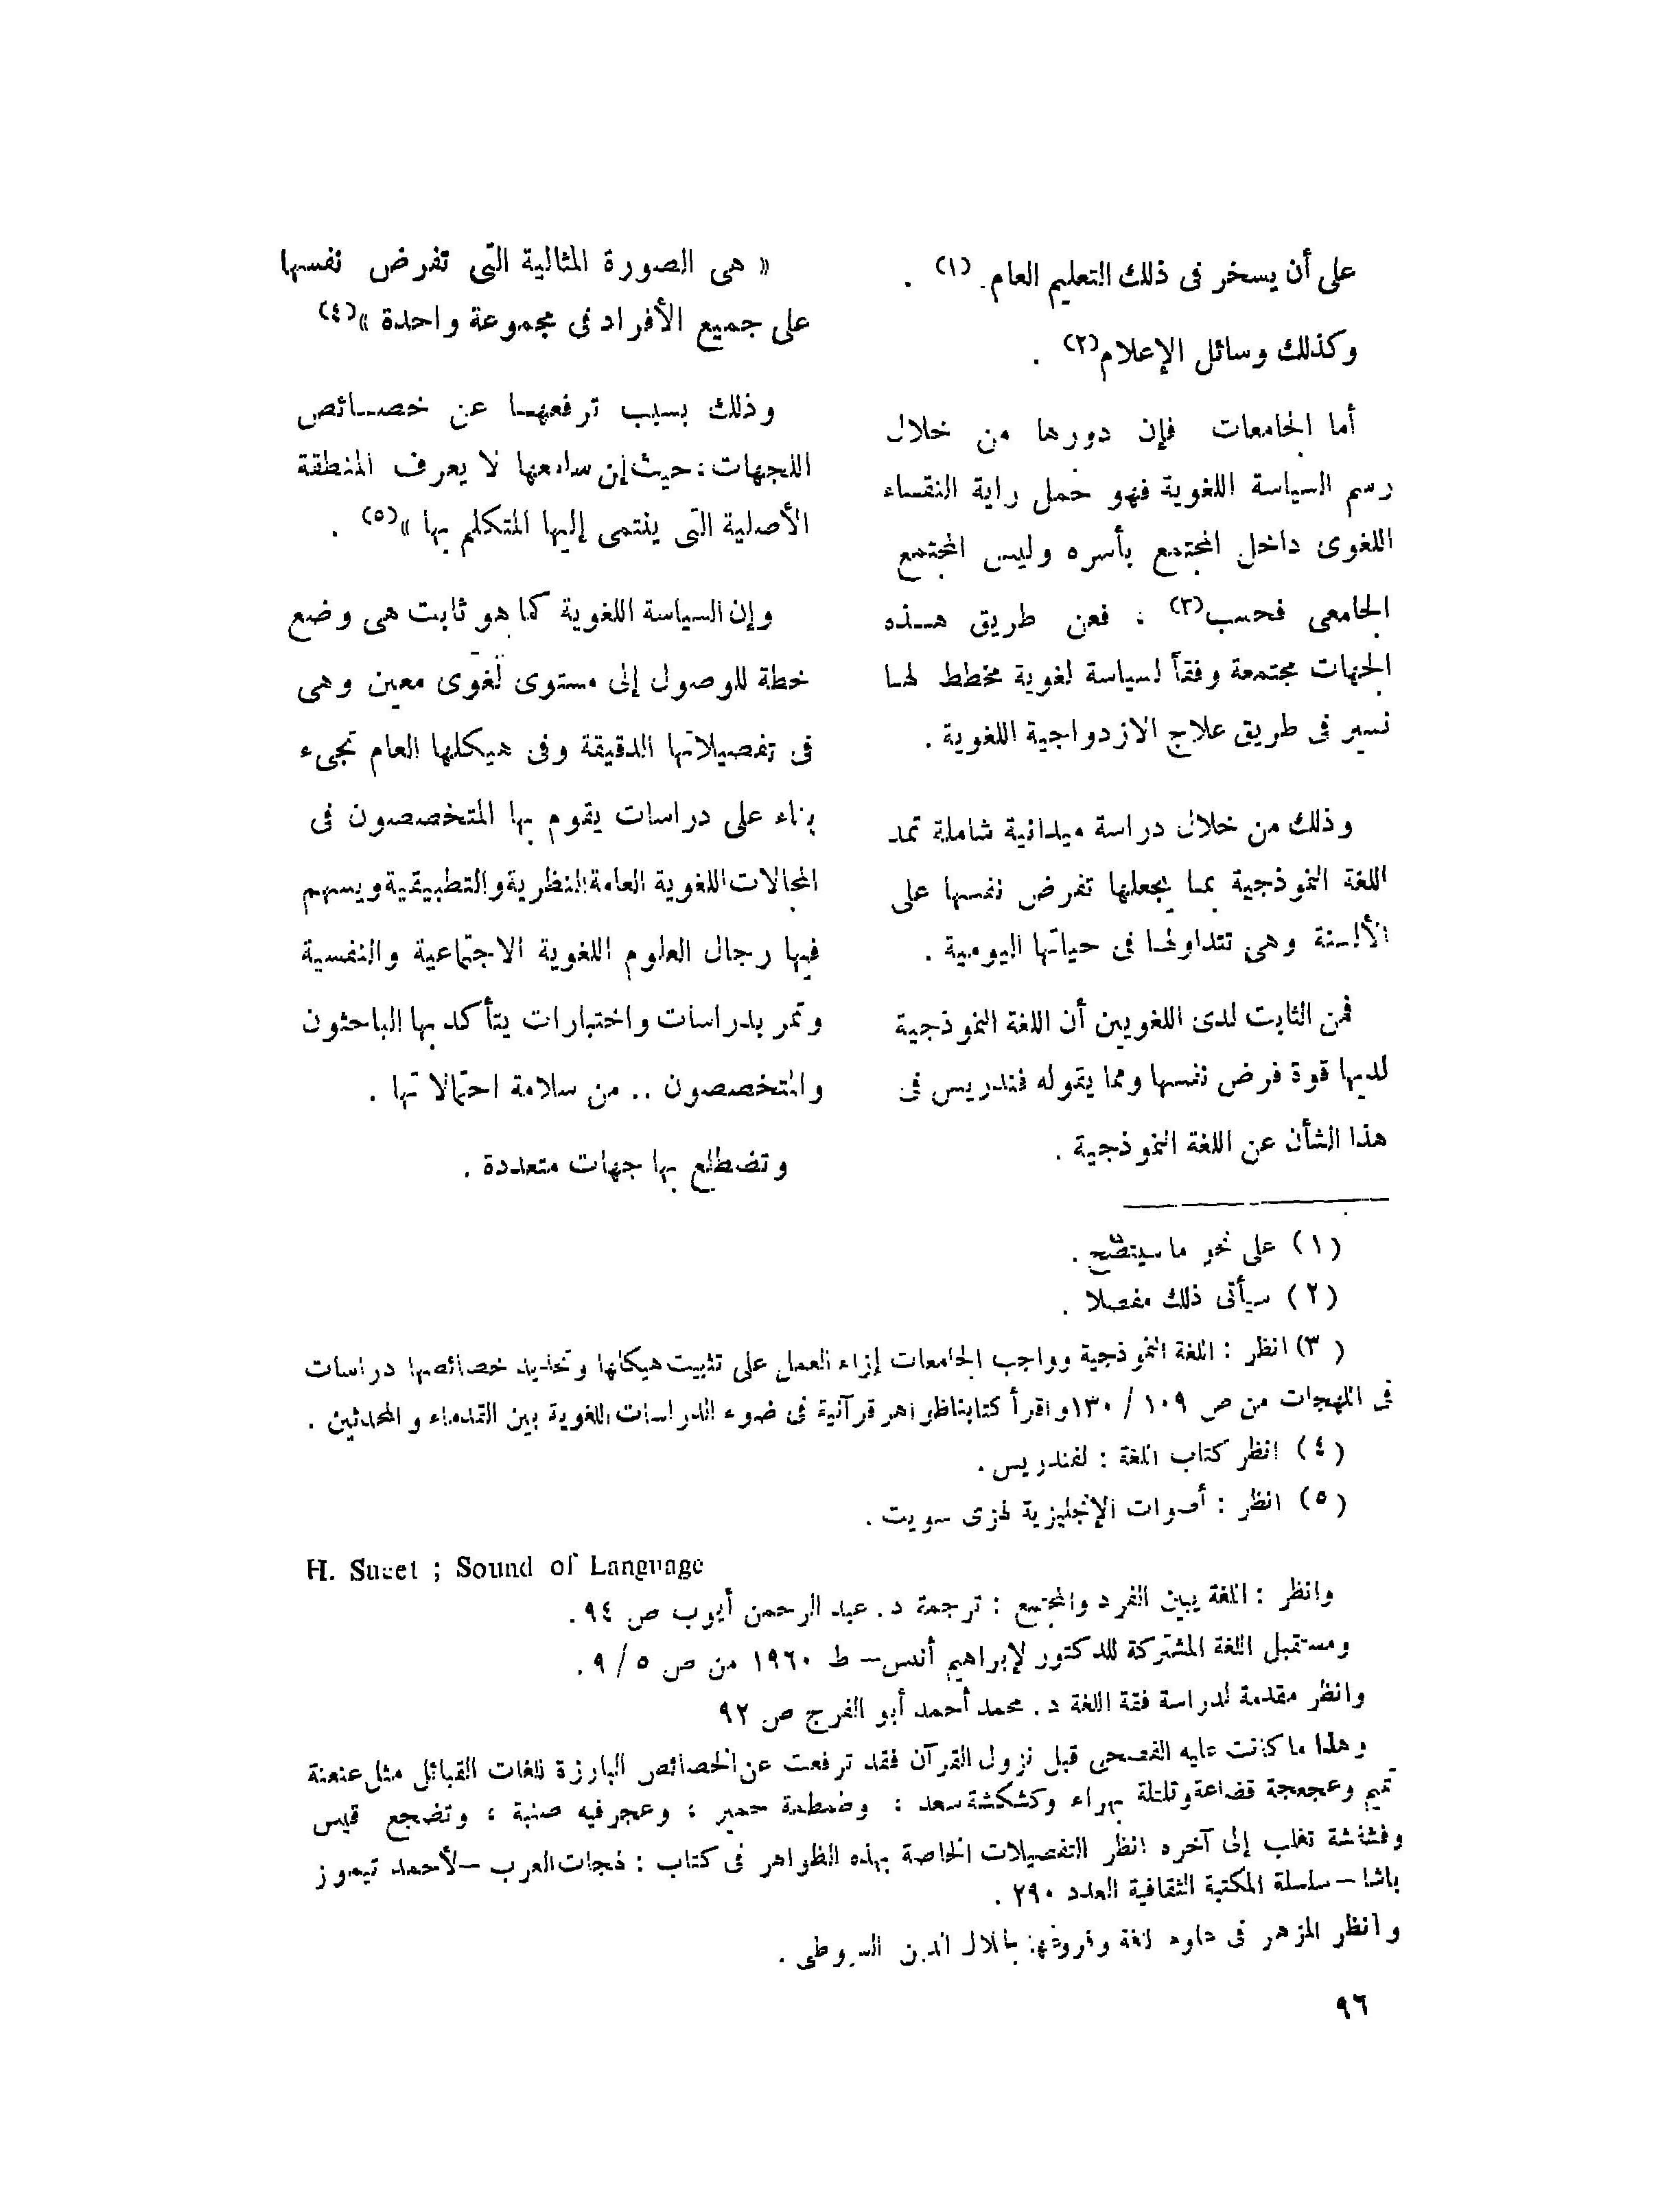 على أن يسخر فى ذلك التعليم العام. (١) .
وكذلك وسائل الإعلام(٢) .
أما الجامعات فإن دورها من خلال
رسم السياسة اللغوية فهو حمل راية النقاء
اللغوى داخل المجتمع بأسره وليس المجتمع
الجامعى فحسب(٣) ، فعن طريق هــذه
الجهات مجتمعة وفقاً لسياسة لغوية مخطط لهـا
نسير فى طريق علاج الازدواجية اللغوية .
وذلك من خلال دراسة ميدانية شاملة تمد
اللغة النموذجية بمـا يجعلها تفرض نفسها على
الألسنة وهى تتداولهـا فى حياتها اليومية .
فمن الثابت لدى اللغويين أن اللغة النموذجية
لديها قوة فرض نفسها ومما يقوله فندريس فى
هذا الشأن عن اللغة النموذجية .
« هى الصورة المثالية التى تفرض نفسها
على جميع الأفراد فى مجموعة واحدة »(٤)
وذلك بسبب ترفعهـا عن خصـائص
اللجهات : حيث إن سامعها لا يعرف المنطقة
الأصلية التى ينتمى إليها المتكلم بها »(٥) .
وإن السياسة اللغوية كما هو ثابت هى وضع
خطة للوصول إلى مستوى لغوى معين وهى
فى تفصيلاتها الدقيقة وفى هيكلها العام تجىء
بناء على دراسات يقوم بها المتخصصون فى
المجالات اللغوية العامة النظرية والتطبيقية ويسهم
فيها رجال العلوم اللغوية الاجتماعية والنفسية
وتمر بدراسات واختبارات يتأكد بها الباحثون
والمتخصصون .. من سلامة احتمالاتها .
وتضطلع بها جهات متعددة .
(١) على نحو ما سيتضح .
(٢) سيأتى ذلك مفصلا .
(٣) انظر : اللغة النموذجية وواجب الجامعات إزاء العمل على تثبيت هيكلها وتحديد خصائصها دراسات
فى اللهجات من ص ١٠٩ / ١٣٠ واقرأ كتابنا ظواهر قرآنية فى ضوء الدراسات اللغوية بين القدماء والمحدثين .
(٤) انظر كتاب اللغة : لفندريس .
(٥) انظر : أصوات الإنجليزية لهزى سويت .
H. Sueet ; Sound of Language
وانظر : اللغة بين الفرد والمجتمع : ترجمة د. عبد الرحمن أيوب ص ٩٤ .
ومستقبل اللغة المشتركة للدكتور لإبراهيم أنس – ط ١٩٦٠ من ص ٥ / ٩ .
وانظر مقدمة لدراسة فقة اللغة د. محمد أحمد أبو الفرج ص ٩٢
وهذا ما كانت عليه الفصحى قبل نزول القرآن فقد ترفعت عن الخصائص البارزة للغات القبائل مثل عنعنة
تميم وعجعجة قضاعة وتلتلة بهراء وكشكشة سعد ، وطمطمة حمير ، وعجرفيه ضبة ، وتضجع قيس
وفشفشة تغلب إلى آخره انظر التفصيلات الخاصة بهذه الظواهر فى كتاب : لهجات العرب – لأحمد تيمور
باشا – سلسلة المكتبة الثقافية العدد ٢٩٠ .
وانظر المزهر فى لغة السيوطى .
٩٦